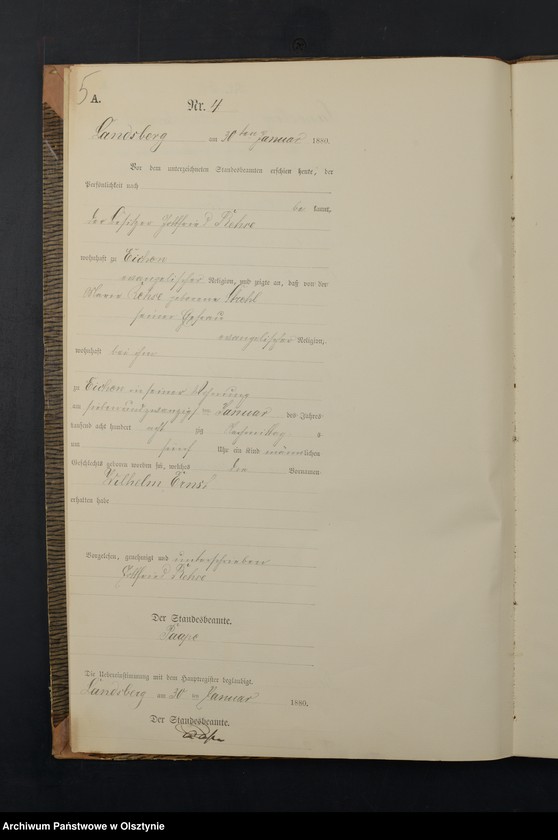 5
A.
Nr. 4
Landsberg am 30ten Januar 1880.
Vor dem unterzeichneten Standesbeamten erschien heute, der
Persönlichkeit nach
be kannt,
der Besitzer Gottfried
wohnhaft zu Eichen
evangelischer Religion, und zeigte an, daß von der
geborene
seiner Ehefrau
evangelischer Religion,
wohnhaft bei ihm
zu Eichen in seiner Wohnung
am siebenundzwanzigsten Januar des Jahres
tausend acht hundert achtzig
um Uhr ein Kind männlichen
Geschlechts geboren worden sei, welches die Vornamen
Wilhelm Ernst
erhalten habe
Vorgelesen, genehmigt und unterschrieben
Gottfried
Der Standesbeamte.
Die Uebereinstimmung mit dem Hauptregister beglaubigt.
Landsberg am 30 ten Januar 1880.
Der Standesbeamte.
Archiwum Państwowe w Olsztynie